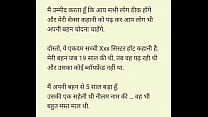 मैं उम्मीद करता हूँ कि आप सभी लोग ठीक होंगे
और मेरी सेक्स कहानी को पढ़ कर आप लोग भी
अपनी बहन चोदना चाहेंगे.
दोस्तो, ये एकदम सच्ची Xxx सिस्टर हॉट कहानी है.
मेरी बहन जब 19 साल की थी, तब वह पढ़ रही थी
और उसका कोई ब्वॉयफ्रेंड नहीं था.
मैं अपनी बहन से 5 साल बड़ा हूँ.
उसकी एक सहेली थी नीलम नाम की … वह भी
बहुत मस्त माल थी.